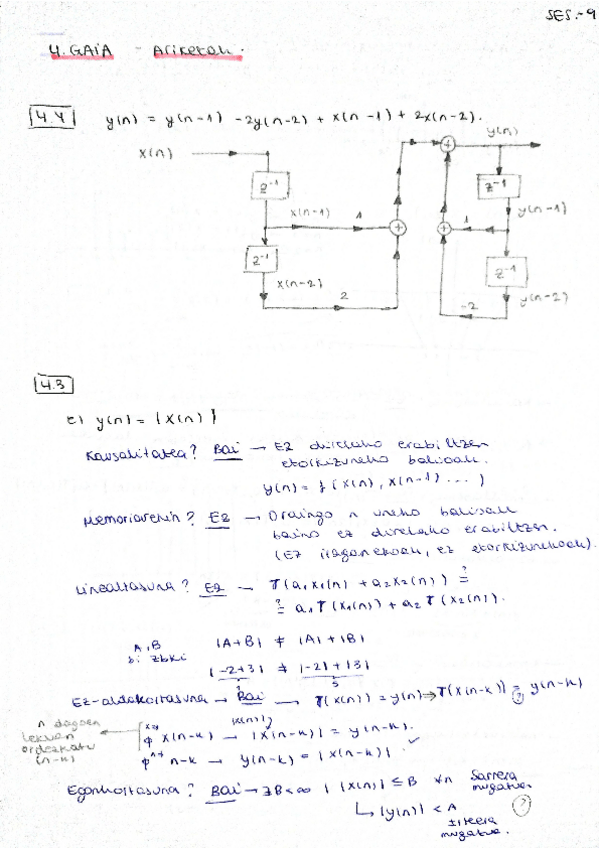 SES.-9
4. GAIA - ARIKETAK.
4.4 y(n) = y(n-1) - 2y(n-2) + x(n-1) + 2x(n-2).
x(n)
y(n)
z⁻¹
z⁻¹
x(n-1) 1
1 y(n-1)
z⁻¹
z⁻¹
x(n-2)
2
-2 y(n-2)
4.3
e) y(n) = |x(n)|
Kausalitatea? Bai → Ez direlako erabiltzen
etorkizuneko balioak.
y(n) = f(x(n), x(n-1) ...)
Memoriarekin? Ez → Oraingo n uneko balioak
baino ez direlako erabiltzen.
(Ez iraganekoak, ez etorkizunekoak).
Linealtasuna? Ez → T(a₁x₁(n) + a₂x₂(n)) ?=
?= a₁T(x₁(n)) + a₂T(x₂(n)).
A, B
bi zbki
|A+B| ≠ |A| + |B|
|-2+3| ≠ |-2| + |3|
1 5
Ez-aldakortasuna → Bai → T(x(n)) = y(n) ⇒ T(x(n-k)) = y(n-k)
?
|x(n)|
x(n-k) → |x(n-k)| = y(n-k).
n-k → y(n-k) = |x(n-k)| ✓
n dagoen
lekuan
ordezkatu
(n-k)
Egonkortasuna? Bai → ∃B<∞ | |x(n)| ≤ B ∀n Sarrera
mugatua.
↳ |y(n)| < A ?
irteera
mugatua.